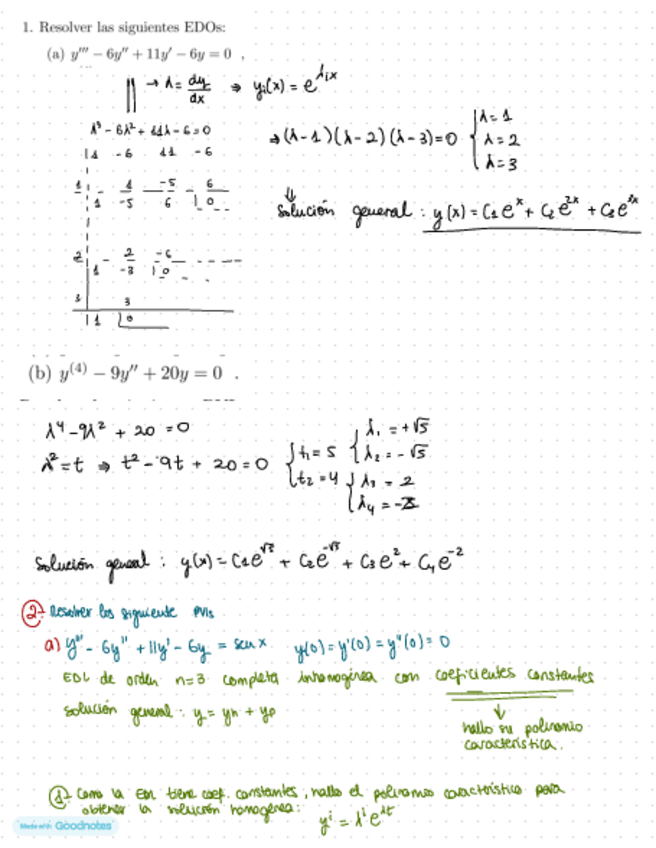 1. Resolver las siguientes EDOs:
(a) y''' − 6y'' + 11y' − 6y = 0 ,
→ λ = dy/dx ⇒ yᵢ(x) = e^λᵢx
λ³ - 6λ² + 11λ - 6 = 0
⇒ (λ-1)(λ-2)(λ-3) = 0 { λ = 1
λ = 2
λ = 3
1 -6 11 -6
1 | 1 -5 6
1 -5 6 | 0
Solución general : y(x) = C1 e^x + C2 e^2x + C3 e^3x
2 | 2 -6
1 -3 | 0
3 3
1 | 0
(b) y^(4) − 9y'' + 20y = 0 .
λ⁴ - 9λ² + 20 = 0
λ² = t ⇒ t² - 9t + 20 = 0 { t1 = 5 { λ1 = +√5
λ2 = -√5
t2 = 4 { λ3 = 2
λ4 = -2
Solución general : y(x) = C1 e^√5 + C2 e^-√5 + C3 e^2 + C4 e^-2
2- Resolver los siguiente PVIs
a) y''' - 6y'' + 11y' - 6y = sen x y(0) = y'(0) = y''(0) = 0
EDL de orden n=3 completa inhomogénea con coeficientes constantes
Solución general : y = yh + yp
hallo su polinomio
característica.
1- Como la EDL tiene coef. constantes, hallo el polinomio característico para
obtener la solución homogénea:
yⁱ = λⁱ e^λt
Made with Goodnotes